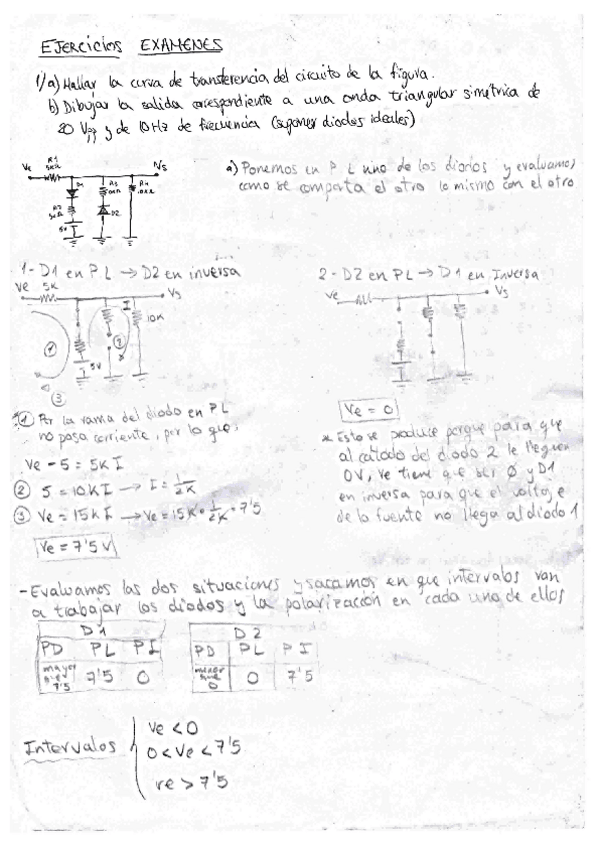 EJERCICIOS EXAMENES
1/a) Hallar la curva de transferencia del circuito de la figura.
b) Dibujar la salida correspondiente a una onda triangular simétrica de
20 Vpp y de 10 Hz de frecuencia (suponer diodos ideales)
Ve R1 5KΩ Vs
D1 R3 R4
R2 D2
5V
a) Ponemos en P L uno de los diodos y evaluamos
como se comporta el otro lo mismo con el otro
1 - D1 en P L → D2 en inversa
Ve 5K Vs
I 10K
① ② 5V
③
2 - D2 en PL → D1 en Inversa
Ve Vs
① Por la rama del diodo en PL
no pasa corriente, por lo que:
Ve - 5 = 5K I
② 5 = 10K I → I = 1/2K
③ Ve = 15K I → Ve = 15K · 1/2K = 7'5
Ve = 7'5 V
Ve = 0
* Esto se produce porque para que
al catodo del diodo 2 le lleguen
0V, Ve tiene que ser 0 y D1
en inversa para que el voltaje
de la fuente no llega al diodo 1
- Evaluamos las dos situaciones y sacamos en que intervalos van
a trabajar los diodos y la polarización en cada uno de ellos
D1
PD PL PI
mayor que 7'5 7'5 0
D2
PD PL PI
menor que 0 0 7'5
Intervalos
Ve < 0
0 < Ve < 7'5
Ve > 7'5